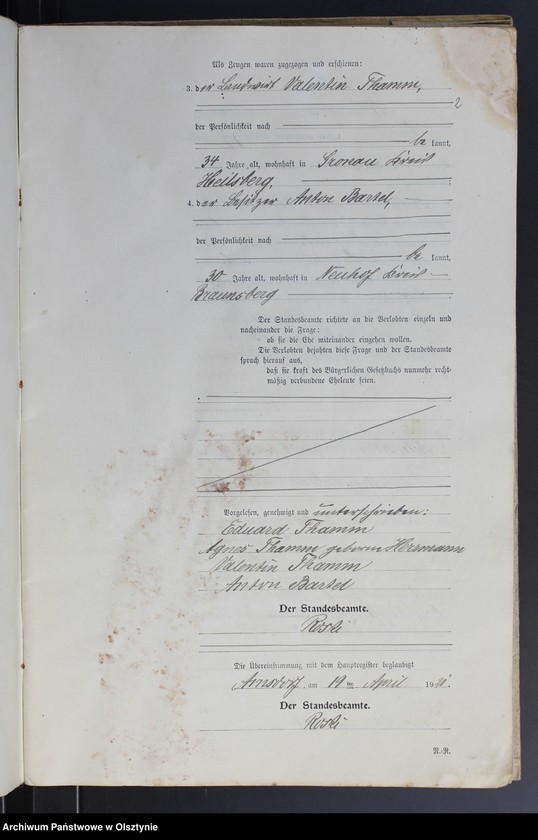 Als Zeugen waren zugezogen und erschienen:
3. der Landwirt Valentin Thamm,
2
der Persönlichkeit nach
be kannt,
34 Jahre alt, wohnhaft in Gronau Kreis
Heilsberg, ;
4. der Besitzer Anton Bartel,
der Persönlichkeit nach
be kannt,
30 Jahre alt, wohnhaft in Neuhof Kreis
Braunsberg .
Der Standesbeamte richtete an die Verlobten einzeln und
nacheinander die Frage:
ob sie die Ehe miteinander eingehen wollen.
Die Verlobten bejahten diese Frage und der Standesbeamte
sprach hierauf aus,
daß sie kraft des Bürgerlichen Gesetzbuchs nunmehr recht-
mäßig verbundene Eheleute seien.
Vorgelesen, genehmigt und unterschrieben:
Eduard Thamm
Agnes Thamm geborne Herrmann
Valentin Thamm
Anton Bartel
Der Standesbeamte.
Roski
Die Übereinstimmung mit dem Hauptregister beglaubigt
Arnsdorf, am 19ten April 19
Der Standesbeamte.
Roski
N.-R.
Archiwum Państwowe w Olsztynie